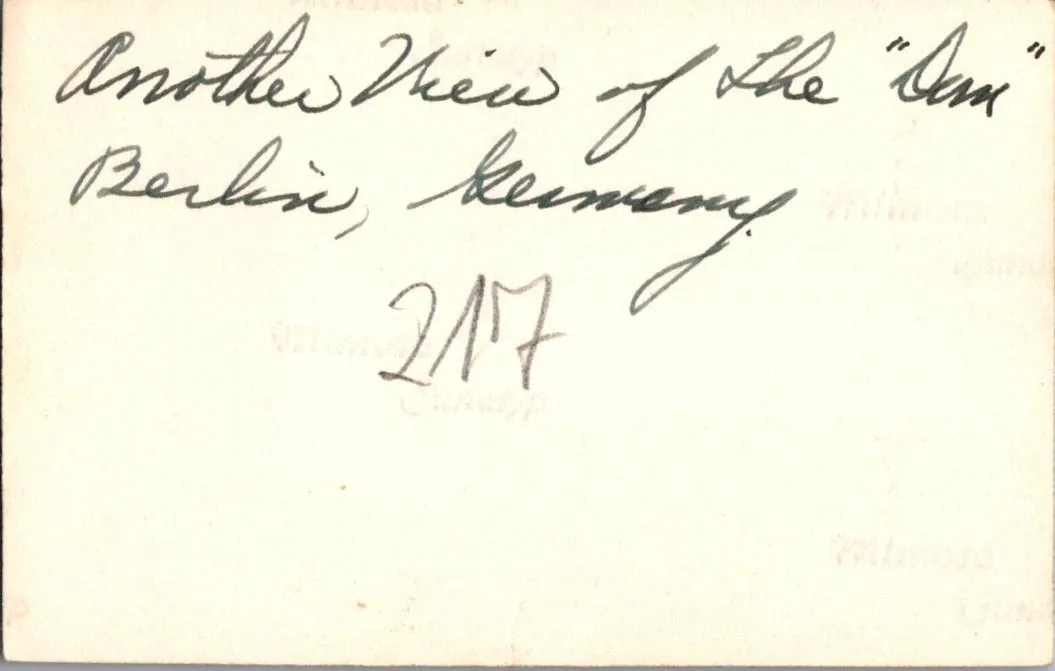 Another View of the "Dom"
Berlin, Germany.
217